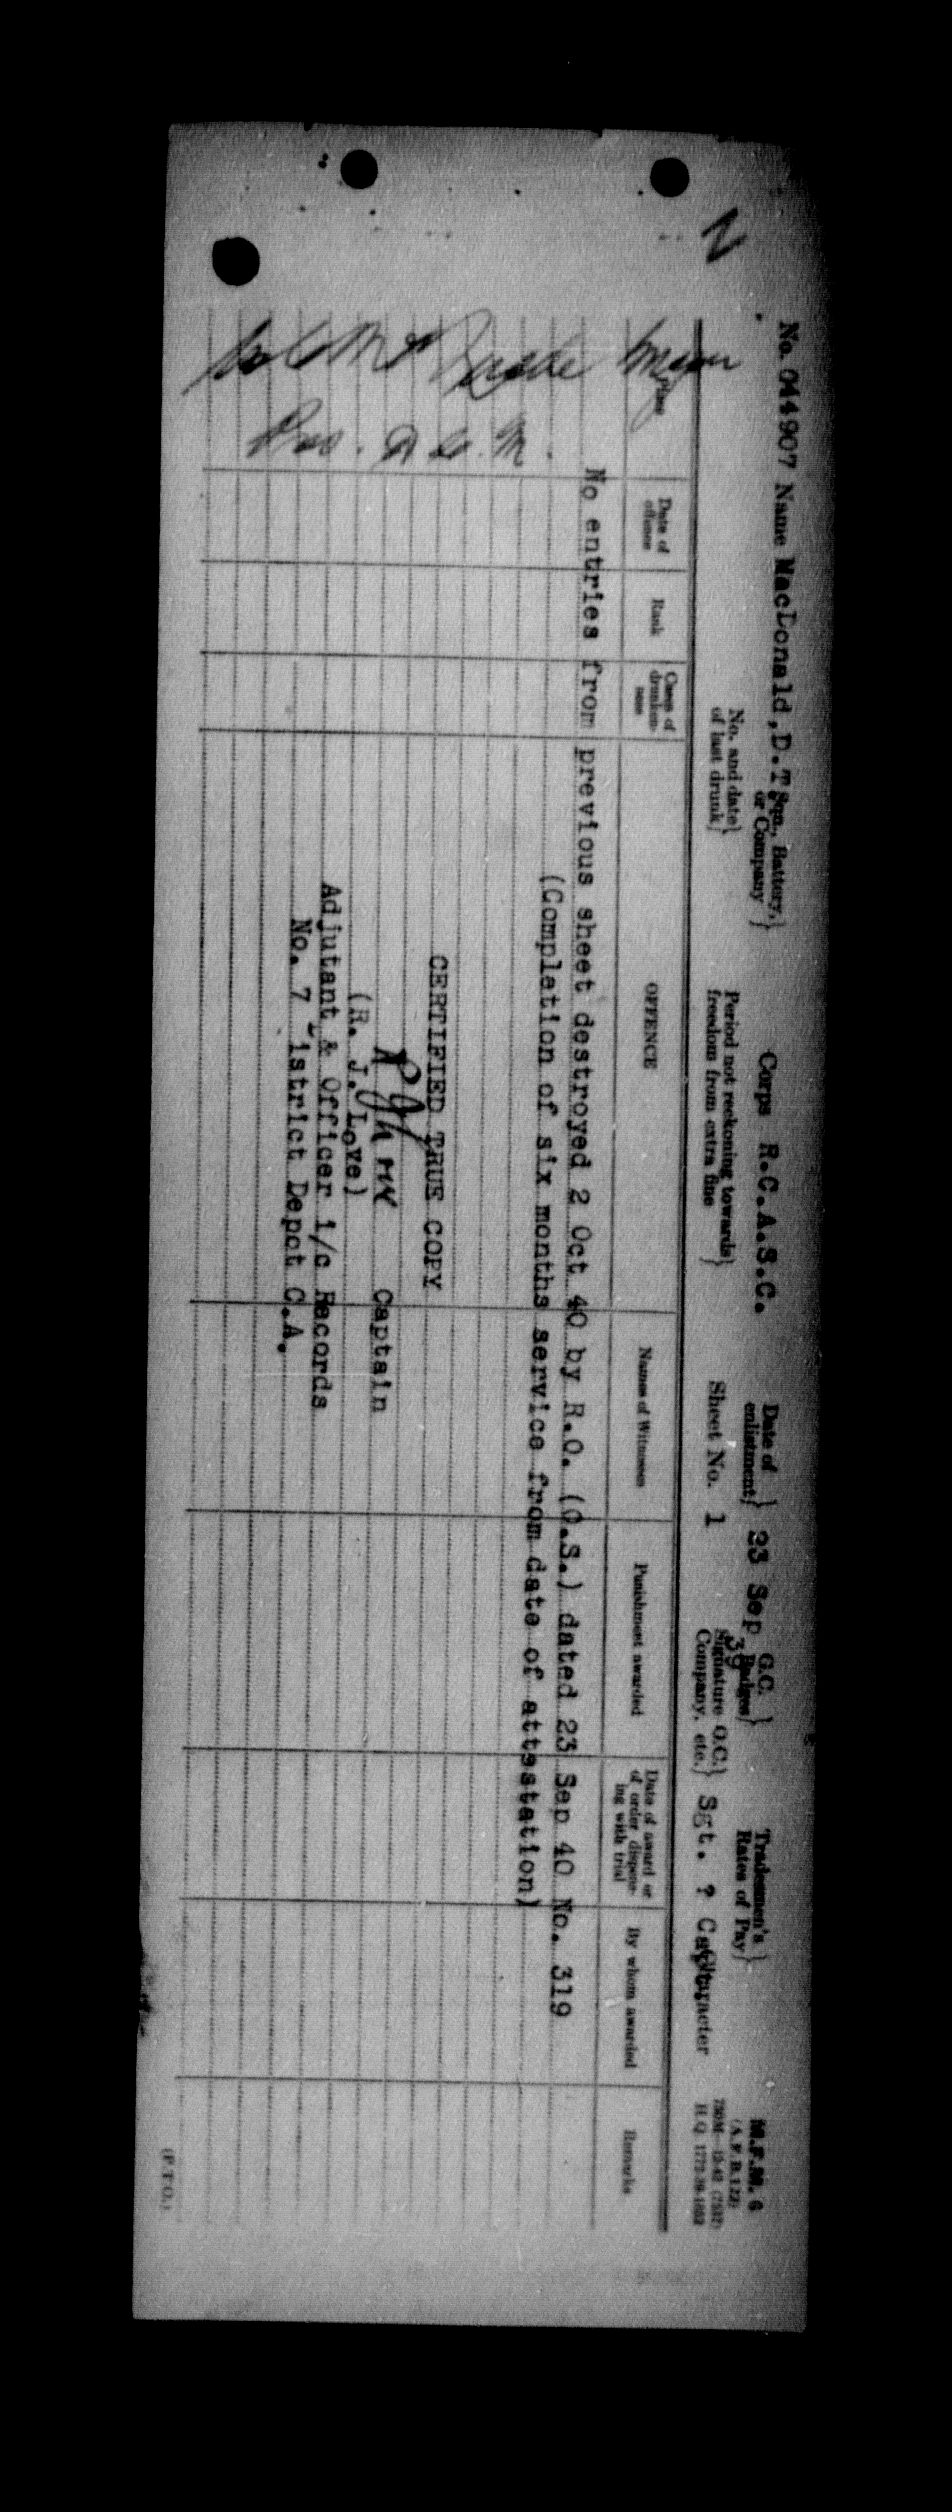 N
M.F.M. 6
No. G44907 Name MacDonald, D.T. Sqn., Battery, or Company } Corps R.C.A.S.C. Date of enlistment } 23 Sep 39 G.C. Badges } Tradesmen's Rates of Pay }
No. and date of last drunk } Period not reckoning towards freedom from extra fine } Sheet No. 1 Signature O.C. Company, etc. } Sgt. ? Capt. Character
Place Date of offence Rank Cases of drunkenness OFFENCE Names of Witnesses Punishment awarded Date of award or of order dispensing with trial By whom awarded Remarks
No entries from previous sheet destroyed 2 Oct 40 by R.O. (O.S.) dated 23 Sep 40 No. 319
(Completion of six months service from date of attestation)
CERTIFIED TRUE COPY
Captain
(R. J. Love)
Adjutant & Officer i/c Records
No. 7 District Depot C.A.
Major
(P.T.O.)